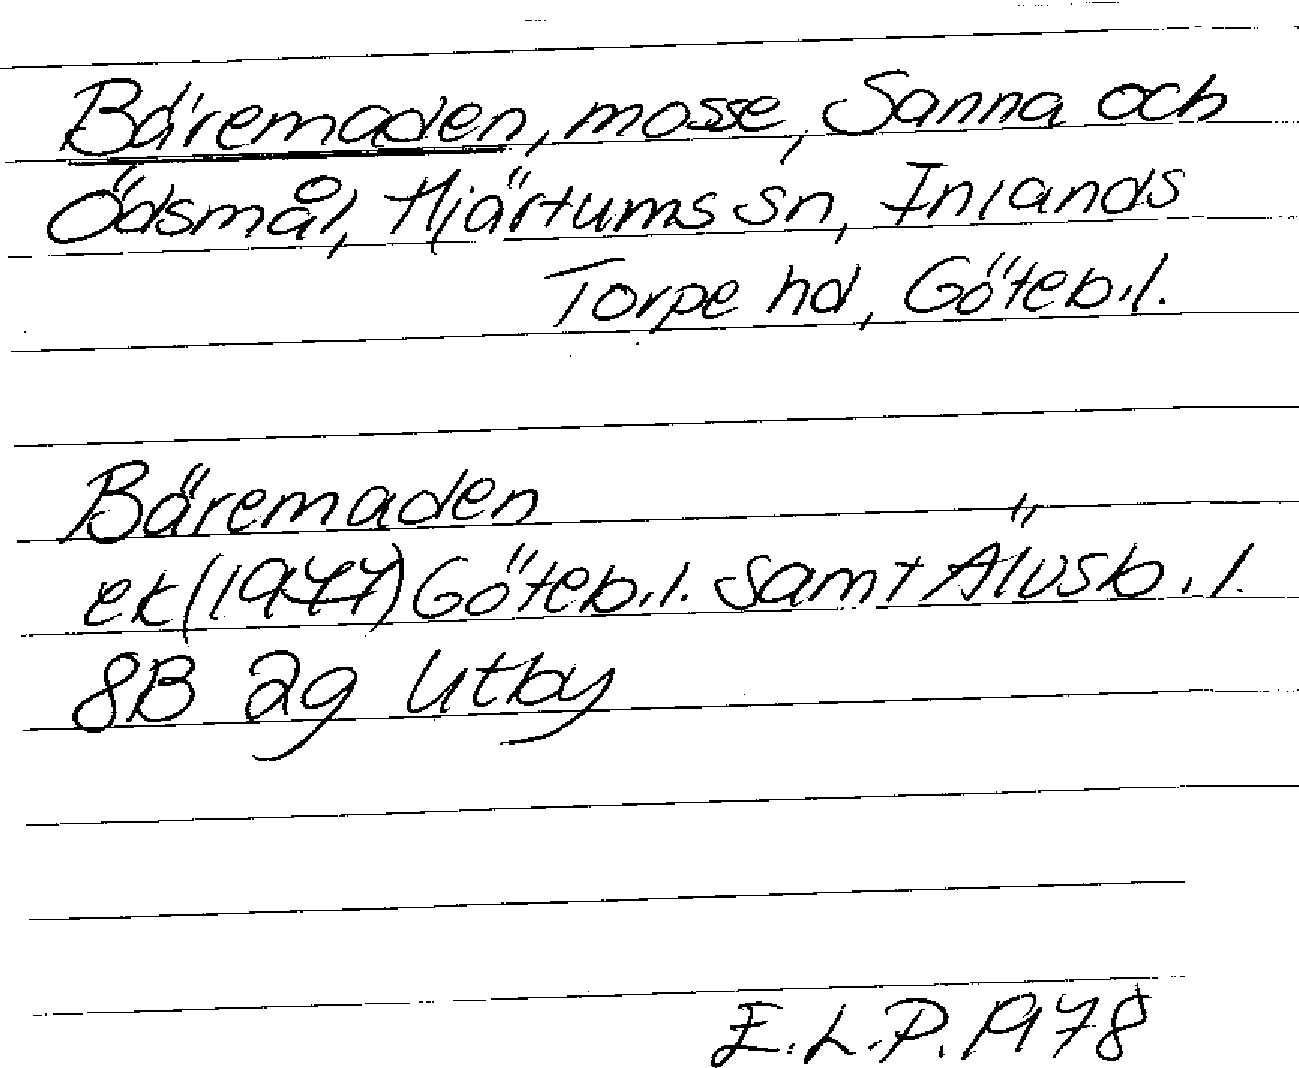 Bäremaden, mosse, Sanna och
Ödsmål, Hjärtums sn, Inlands
Torpe hd, Göteb.l.
Bäremaden
ek (1977) Göteb.l. samt Älvsb.l.
8B 2g Utby
E.L.P. 1978